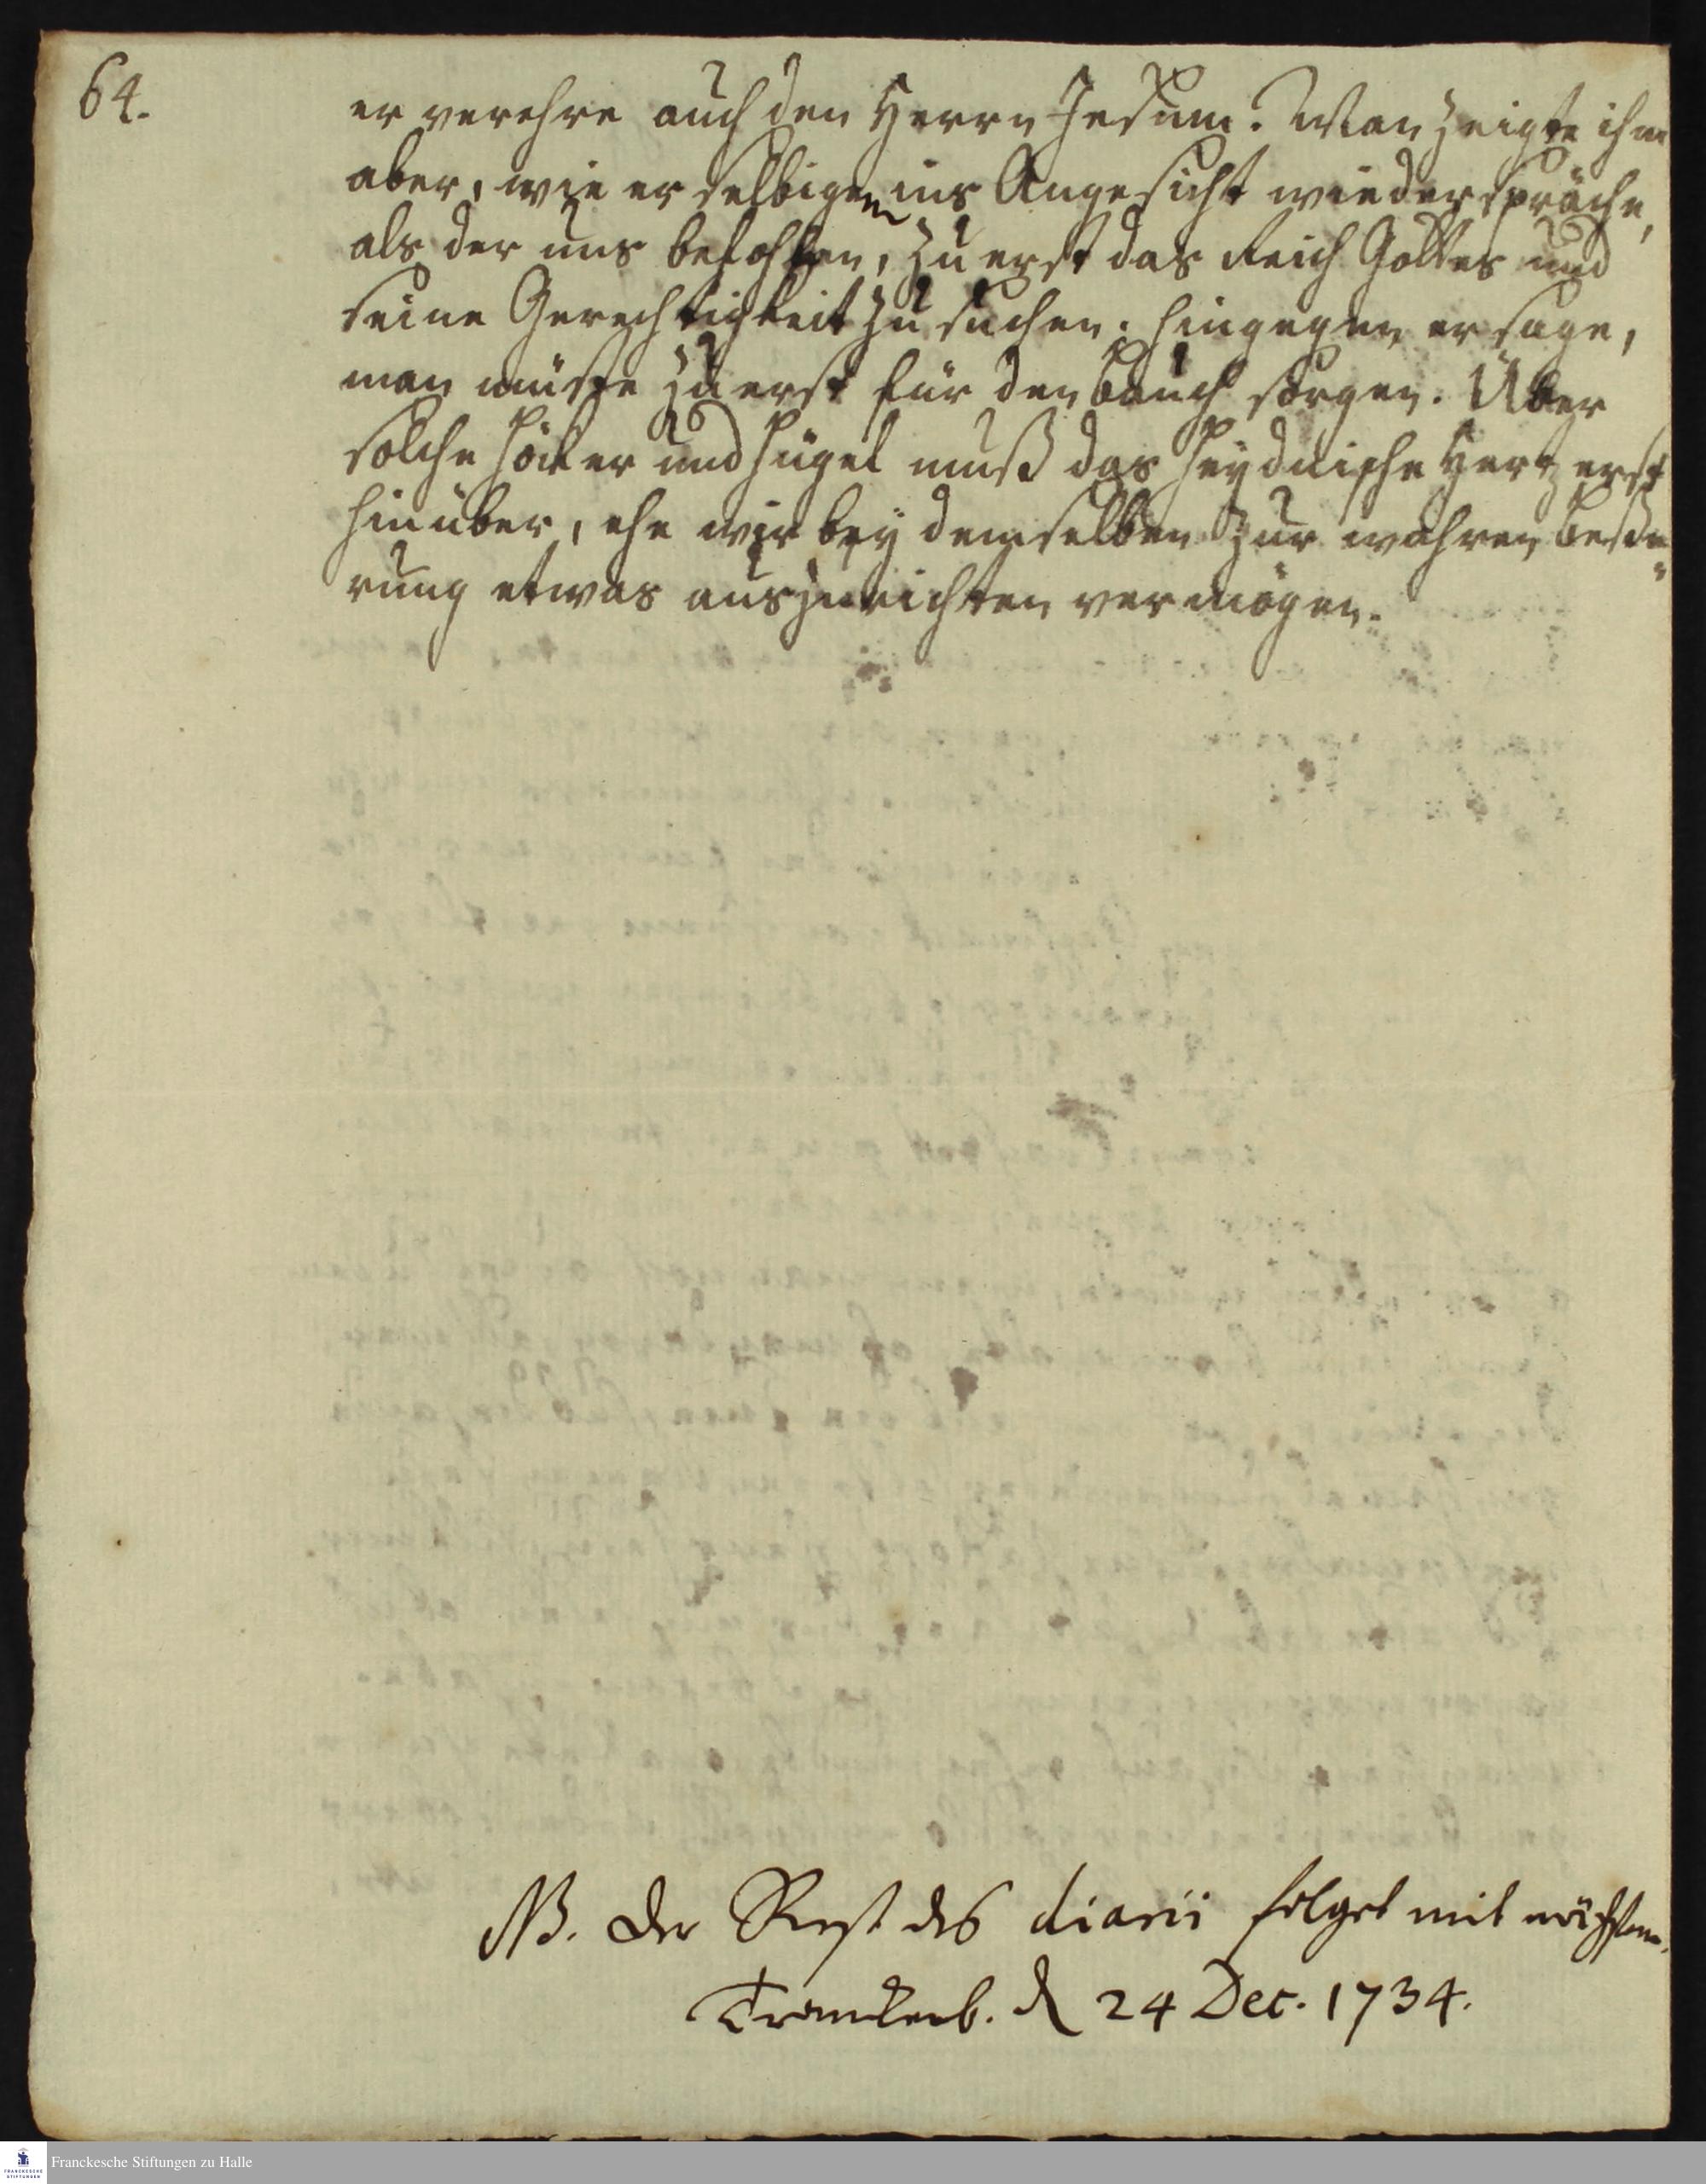 64.
er verehre auch den Herrn Jesum. Man zeigte ihm
aber, wie er selbigem ins Angesicht wiederspräche,
als der uns befohlen, zu erst das Reich Gottes und
seine Gerechtigkeit zu suchen; hingegen er sage,
man müste zu erst für den Bauch sorgen. Über
solche Höcker und Hügel muß das Heydnische Hertz erst
hinüber, ehe wir bey demselben zur wahren Beße-
rung etwas auszurichten vermögen.
NB. Der Rest des diarii folget mit nächstem.
Trankenb. d 24 Dec. 1734.
FRANCKESCHE
STIFTUNGEN
Franckesche Stiftungen zu Halle